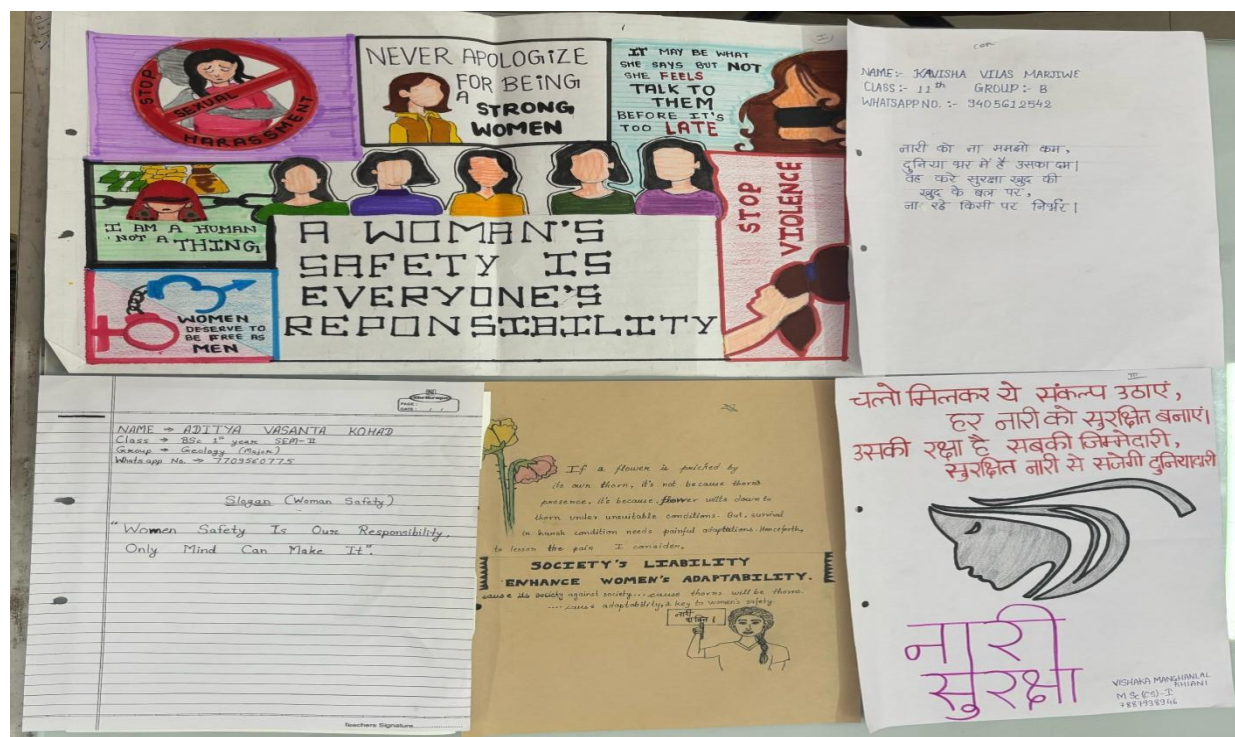 STOP
SEXUAL
HARASSMENT
NEVER APOLOGIZE
FOR BEING
A STRONG
WOMEN
IT MAY BE WHAT
SHE SAYS BUT NOT
SHE FEELS
TALK TO
THEM
BEFORE IT'S
TOO LATE
I AM A HUMAN
NOT A THING
STOP
VIOLENCE
WOMEN
DESERVE TO
BE FREE AS
MEN
A WOMAN'S
SAFETY IS
EVERYONE'S
REPONSIBILITY
NAME:- KAVISHA VILAS MARJIWE
CLASS:- 11th GROUP:- B
WHATSAPP NO. :- 9405612542
नारी को ना समझो कम,
दुनिया भर में हैं उसका दम।
वह करे सुरक्षा खुद की
खुद के बल पर,
ना रहे किसी पर निर्भर।
PAGE:
DATE: / /
NAME → ADITYA VASANTA KOHAD
Class → BSc 1st year SEM-II
Group → Geology (Major)
Whatsapp No. → 7703560775
Slogan (Woman Safety)
"Women Safety Is Our Responsibility,
Only Mind Can Make It".
Teachers Signature
If a flower is pricked by
its own thorn, it's not because thorn's
presence, it's because, flower wilts down to
thorn under unsuitable conditions. But, survival
in harsh condition needs painful adaptations. Henceforth,
to lessen the pain I consider,
SOCIETY'S LIABILITY
ENHANCE WOMEN'S ADAPTABILITY.
cause its society against society....cause thorns will be thorns
....cause adaptability, a key to women's safety.
नारी
III
चलो मिलकर ये संकल्प उठाएं,
हर नारी को सुरक्षित बनाएं।
उसकी रक्षा है सबकी जिम्मेदारी,
सुरक्षित नारी से सजेगी दुनियादारी
नारी
सुरक्षा
VISHAKA MANGHANLAL
KHIANI
M Sc (CS)-I
7887938946